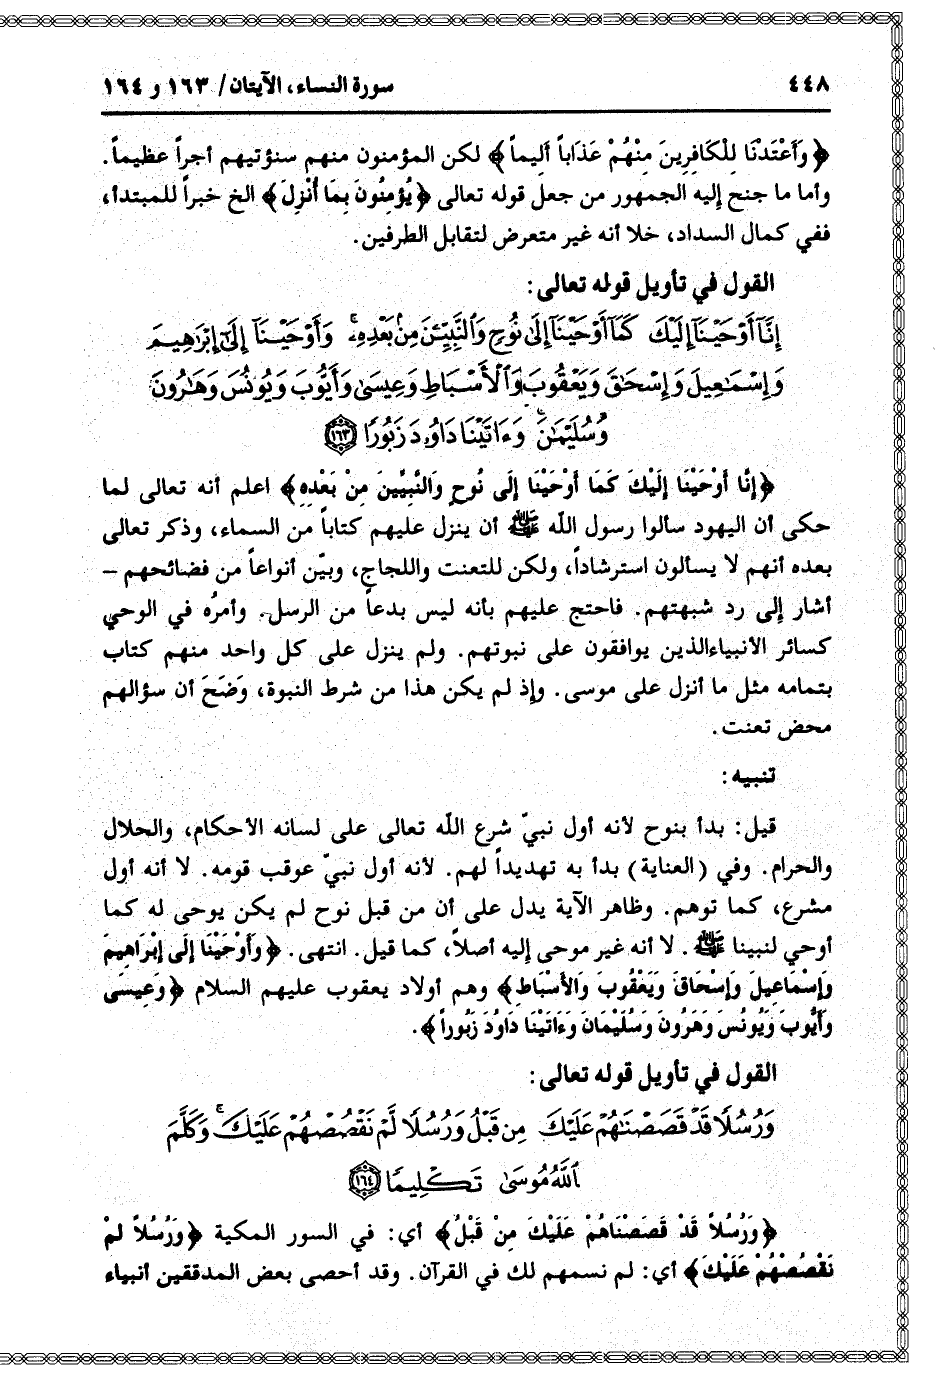 ٤٤٨ سورة النساء، الآيتان/ ١٦٣ و ١٦٤
﴿وَأَعْتَدْنَا لِلْكَافِرِينَ مِنْهُمْ عَذَاباً أَلِيماً﴾ لكن المؤمنون منهم سنؤتيهم أجراً عظيماً.
وأما ما جنح إليه الجمهور من جعل قوله تعالى ﴿يُؤْمِنُونَ بِمَا أُنْزِلَ﴾ الخ خبراً للمبتدأ،
ففي كمال السداد، خلا أنه غير متعرض لتقابل الطرفين.
القول في تأويل قوله تعالى:
إِنَّآ أَوْحَيْنَآ إِلَيْكَ كَمَآ أَوْحَيْنَآ إِلَىٰ نُوحٍ وَٱلنَّبِيِّـۧنَ مِنۢ بَعْدِهِۦ ۚ وَأَوْحَيْنَآ إِلَىٰٓ إِبْرَٰهِيمَ
وَإِسْمَٰعِيلَ وَإِسْحَٰقَ وَيَعْقُوبَ وَٱلْأَسْبَاطِ وَعِيسَىٰ وَأَيُّوبَ وَيُونُسَ وَهَٰرُونَ
وَسُلَيْمَٰنَ ۚ وَءَاتَيْنَا دَاوُۥدَ زَبُورًا ١٦٣
﴿إِنَّا أَوْحَيْنَا إِلَيْكَ كَمَا أَوْحَيْنَا إِلَى نُوحٍ وَالنَّبِيِّينَ مِنْ بَعْدِهِ﴾ اعلم أنه تعالى لما
حكى أن اليهود سألوا رسول اللّه ﷺ أن ينزل عليهم كتاباً من السماء، وذكر تعالى
بعده أنهم لا يسألون استرشاداً، ولكن للتعنت واللجاج، وبيّن أنواعاً من فضائحهم –
أشار إلى رد شبهتهم. فاحتج عليهم بأنه ليس بدعاً من الرسل. وأمرُه في الوحي
كسائر الأنبياءالذين يوافقون على نبوتهم. ولم ينزل على كل واحد منهم كتاب
بتمامه مثل ما أنزل على موسى. وإذ لم يكن هذا من شرط النبوة، وَضَحَ أن سؤالهم
محض تعنت.
تنبيه:
قيل: بدأ بنوح لأنه أول نبيّ شرع اللّه تعالى على لسانه الأحكام، والحلال
والحرام. وفي (العناية) بدأ به تهديداً لهم. لأنه أول نبيّ عوقب قومه. لا أنه أول
مشرع، كما توهم. وظاهر الآية يدل على أن من قبل نوح لم يكن يوحى له كما
أوحي لنبينا ﷺ. لا أنه غير موحى إليه أصلاً، كما قيل. انتهى. ﴿وَأَوْحَيْنَا إِلَى إِبْرَاهِيمَ
وَإِسْمَاعِيلَ وَإِسْحَاقَ وَيَعْقُوبَ وَالأَسْبَاطِ﴾ وهم أولاد يعقوب عليهم السلام ﴿وَعِيسَى
وَأَيُّوبَ وَيُونُسَ وَهَرُونَ وَسُلَيْمَانَ وَءَاتَيْنَا دَاوُدَ زَبُوراً﴾.
القول في تأويل قوله تعالى:
وَرُسُلًا قَدْ قَصَصْنَٰهُمْ عَلَيْكَ مِن قَبْلُ وَرُسُلًا لَّمْ نَقْصُصْهُمْ عَلَيْكَ ۚ وَكَلَّمَ
ٱللَّهُ مُوسَىٰ تَكْلِيمًا ١٦٤
﴿وَرُسُلاً قَدْ قَصَصْنَاهُمْ عَلَيْكَ مِنْ قَبْلُ﴾ أي: في السور المكية ﴿وَرُسُلاً لَمْ
نَقْصُصْهُمْ عَلَيْكَ﴾ أي: لم نسمهم لك في القرآن. وقد أحصى بعض المدققين أنبياء